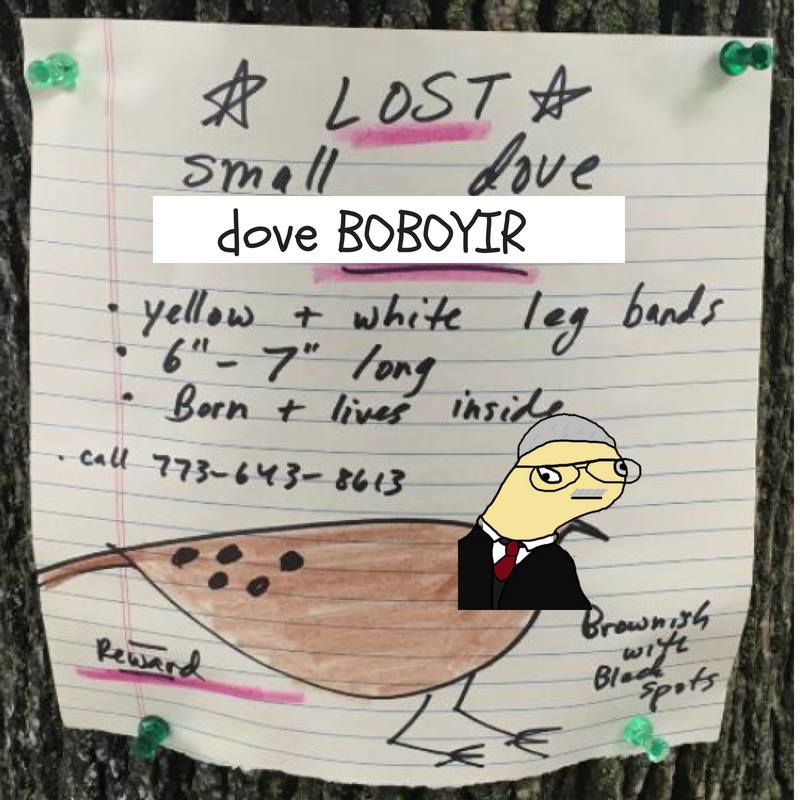 ☆ LOST ☆
small dove
dove BOBOYIR
• yellow + white leg bands
• 6" - 7" long
• Born + lives inside
• call 773-643-8613
Reward
Brownish
with
Black
spots